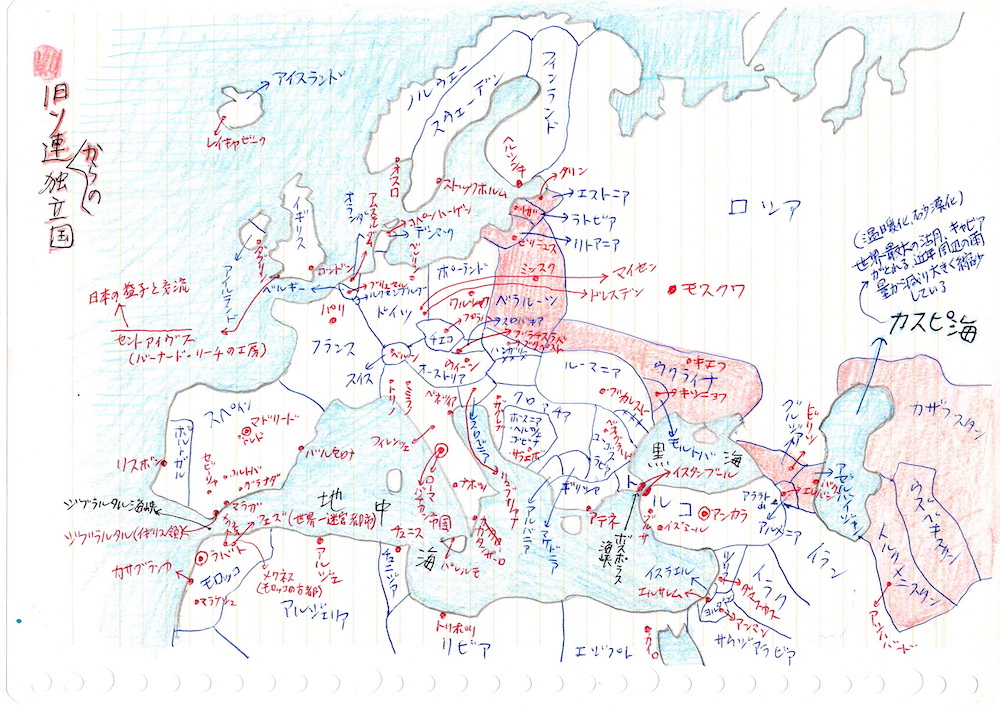 旧ソ連からの独立国
アイスランド
レイキャビーク
ノルウェー
スウェーデン
フィンランド
ヘルシンキ
オスロ
ストックホルム
タリン
エストニア
リガ
ラトビア
リトアニア
ロシア
モスクワ
イギリス
ロンドン
アイルランド
ダブリン
オランダ
アムステルダム
コペンハーゲン
デンマーク
ベルリン
ベルギー
ブリュッセル
ポーランド
ミンスク
ベラルーシ
マイセン
ドレスデン
ドイツ
パリ
フランス
日本の益子と交流
セントアイヴス
(バーナード・リーチの工房)
(温暖化、砂漠化)
世界最大の沼月、キャビア
がとれる 近年周辺の雨
量が減り大きく縮少
している
カスピ海
チェコ
スロバキア
ウィーン
オーストリア
ハンガリー
スイス
ベルン
ルーマニア
ブカレスト
ウクライナ
キエフ
キシニョフ
モルドバ
カザフスタン
ウズベキスタン
トルクメニスタン
スペイン
マドリード
トレド
ポルトガル
リスボン
バルセロナ
セビリャ
コルドバ
グラナダ
マラガ
ジブラルタル海峡
ジブラルタル(イギリス領)
トリノ
ミラノ
ベネツィア
フィレンツェ
ローマ
バチカン帝国
ナポリ
パレルモ
クロアチア
ボスニア
ヘルツェ
ゴビナ
サラエボ
アルバニア
マケドニア
ギリシア
アテネ
地中海
黒海
イスタンブール
ボスポラス
海峡
トルコ
アンカラ
イズミール
アララト山
アルメニア
エレバン
バクー
アゼルバイジャン
イラン
イラク
シリア
ダマスカス
イスラエル
エルサレム
ヨルダン
アンマン
サウジアラビア
エジプト
カイロ
リビア
トリポリ
チュニス
チュニジア
アルジェ
アルジェリア
フェズ(世界一迷宮都市)
メクネス
(モロッコの古都)
ラバト
モロッコ
カサブランカ
マラケシュ